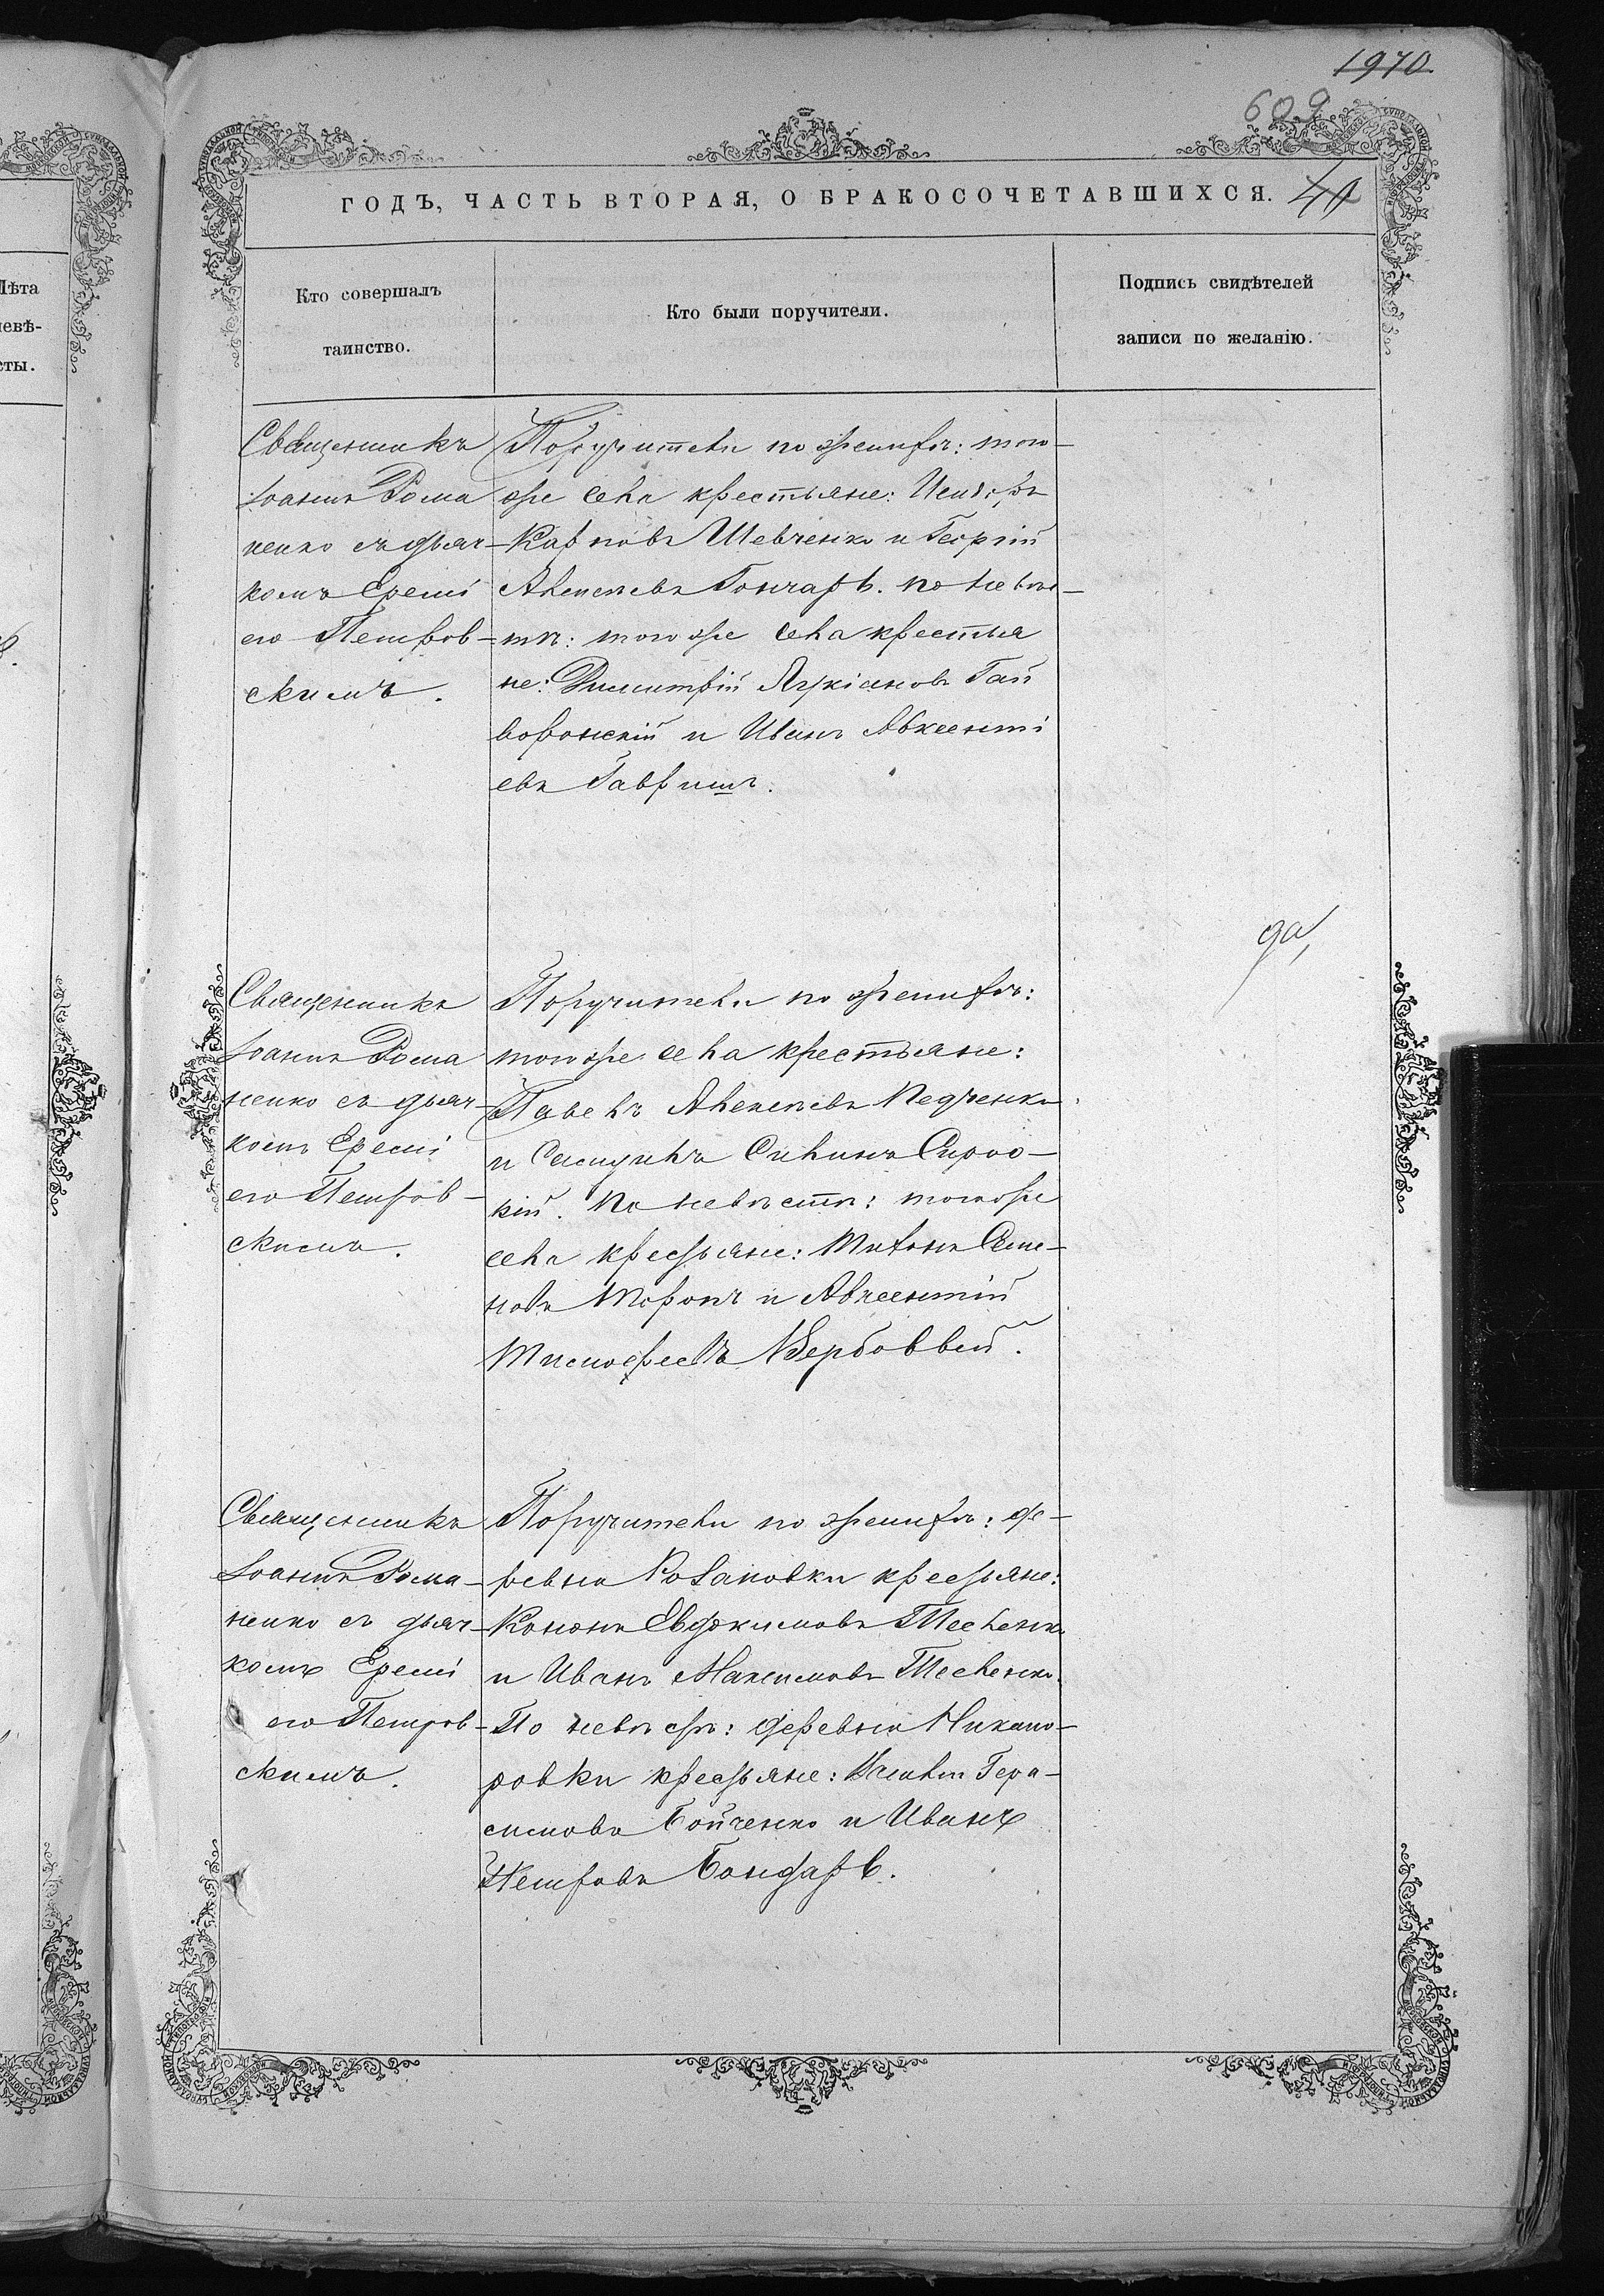 1970.
609
ГОДЪ, ЧАСТЬ ВТОРАЯ, О БРАКОСОЧЕТАВШИХСЯ. 40
Лѣта
невѣ-
сты.
Кто совершалъ
таинство.
Кто были поручители.
Подпись свидѣтелей
записи по желанію.
Священникъ
Іоаннъ Рома
ненко съ дьяч-
комъ Еремі
его Петров-
скимъ.
Поручители по женихѣ: того-
же села крестьяне: Исидоръ
Карповъ Шевченко и Георгій
Алексѣевъ Гончаръ. по невѣс-
тѣ: того же села крестья
не: Димитрій Гай
воронскій и Иванъ Авксенті
евъ Гавришъ.
да,
Священникъ
Іоаннъ Рома
ненко съ дьяч-
комъ Еремі
его Петров-
скимъ.
Поручители по женихѣ:
тогоже села крестьяне:
Павелъ Алексѣевъ Педченко
и Самуилъ Сирос-
кій. По невѣстѣ: тогоже
села крестьяне: Семе-
новъ и Авксентій
Тимофеевъ Вербоввей.
Священникъ
Іоаннъ Рома-
ненко съ дьяч-
комъ Еремі
его Петров-
скимъ.
Поручители по женихѣ: де-
ревни крестьяне:
Кононъ Евдокимовъ Тесленко
и Иванъ Максимовъ Тесленко.
По невѣстѣ: деревни Никано-
ровки крестьяне: Гера-
симовъ Бойченко и Иванъ
Петровъ Бондарь.